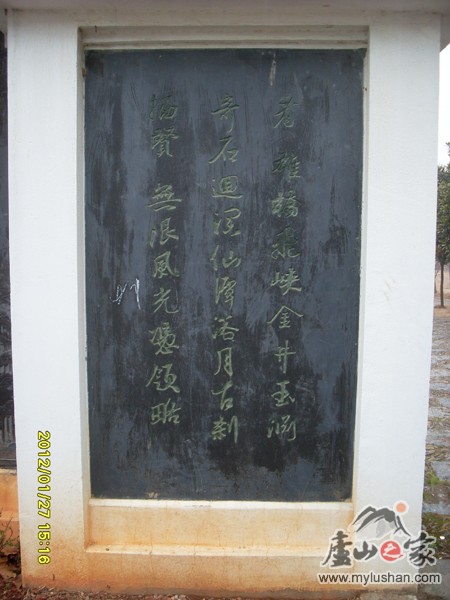 看 雄橋飛峽金井玉淵
奇石迴瀾仙潭落月古刹
揚贊 無限風光憑領略
2012/01/27 15:16
廬山之家
www.mylushan.com